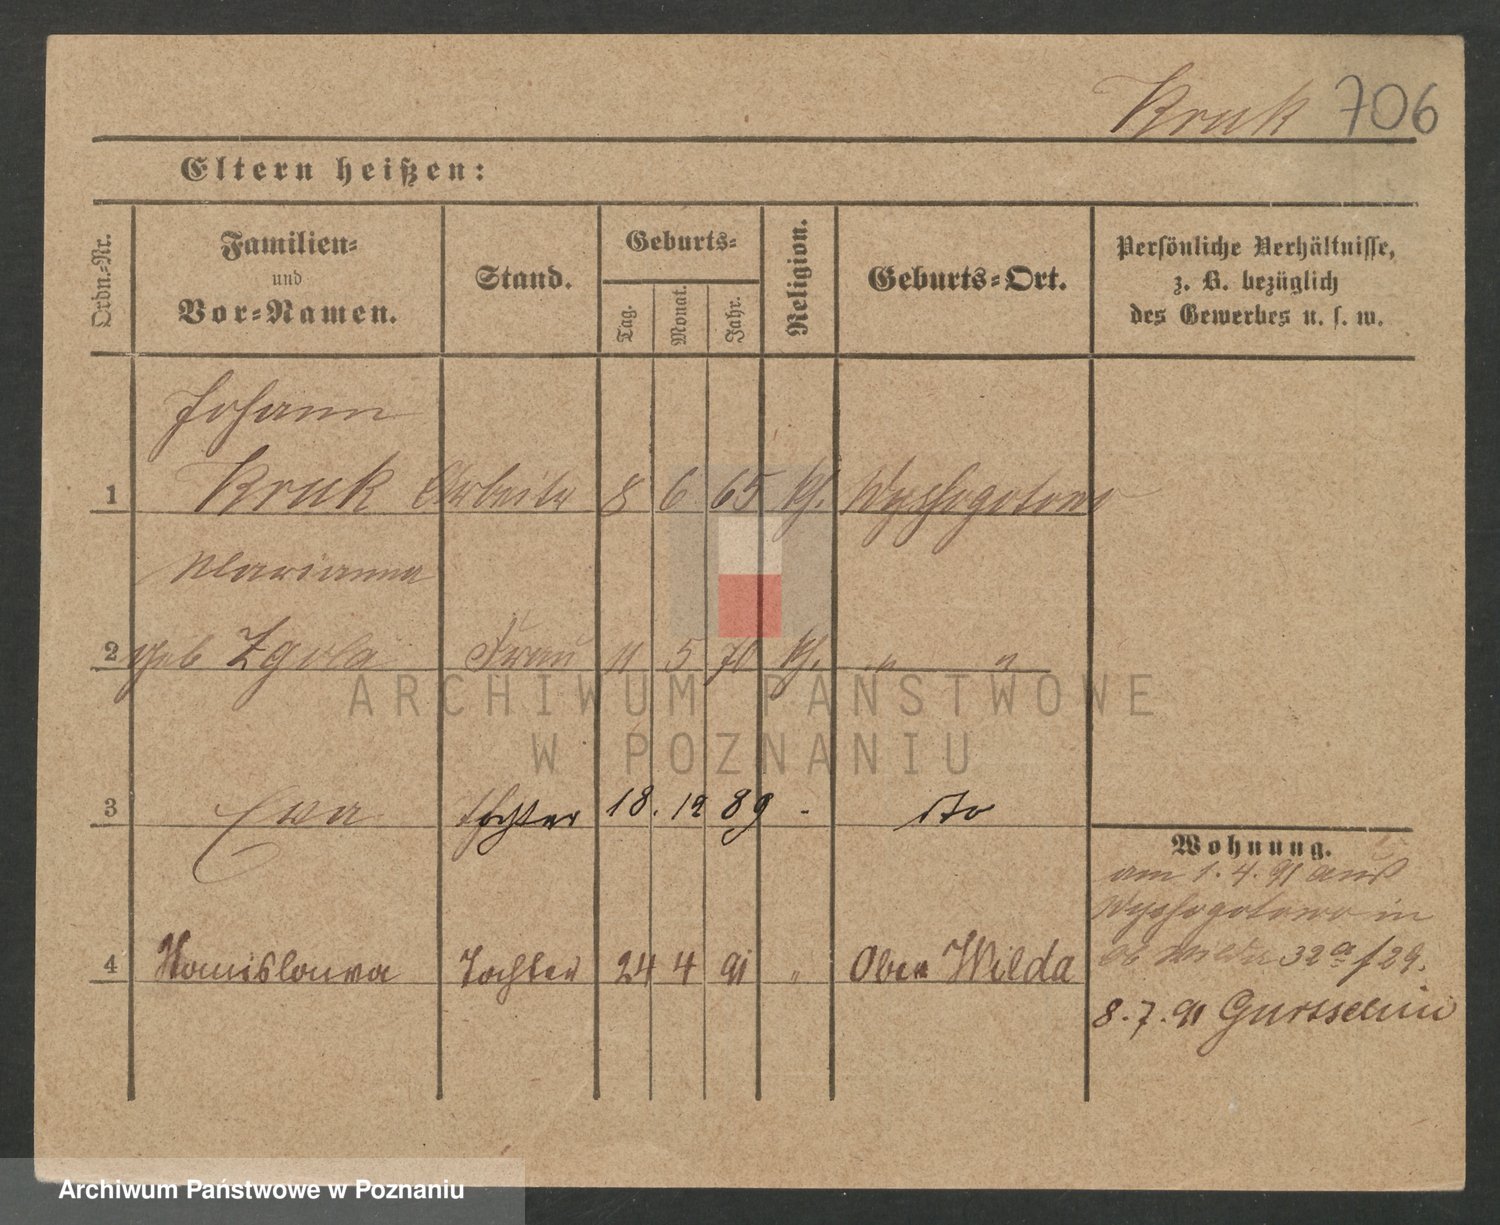 Kruk 706
Eltern heißen:
Ordn.-Nr.
Familien-
und
Vor-Namen.
Stand.
Geburts-
Tag.
Monat.
Jahr.
Religion.
Geburts-Ort.
Persönliche Verhältnisse,
z. B. bezüglich
des Gewerbes u. s. w.
Johann
1 Kruk Arbeiter 8 6 65 kh. Wyssogotowo
Marianna
2 geb Zgola Frau 11 5 71 kh. " "
ARCHIWUM PAŃSTWOWE
W POZNANIU
3 Ewa Tochter 18. 12 89 - dto
Wohnung.
am 1. 4. 91 aus
Wyssogotowo in
Ob Wilda 32a / 29.
4 Stanislowa Tochter 24 4 91 " Ober Wilda
8. 7. 91 Gurtschin
Archiwum Państwowe w Poznaniu